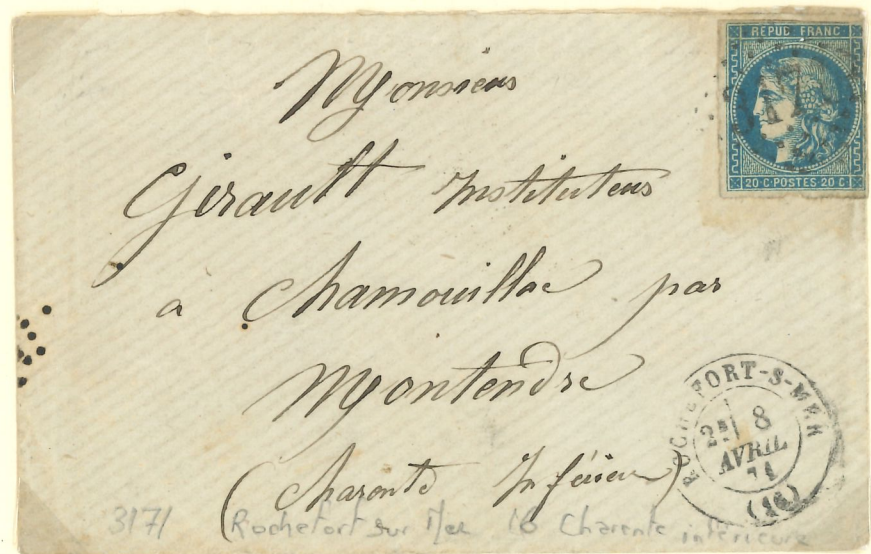 REPUB FRANC
3171
20 C·POSTES 20 C
Monsieur
Girault Instituteur
à Chamouillac par
Montendre
(Charente Inférieure)
ROCHEFORT-S-MER
2E
8
AVRIL
71
(16)
3171 Rochefort sur Mer 16 Charente inférieure